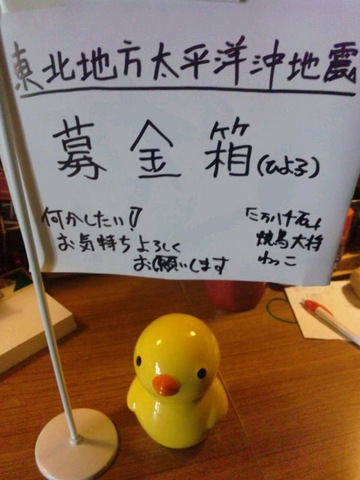 東北地方太平洋沖地震
募金箱(ひよ子)
何かしたい!!
お気持ちよろしく
お願いします
焼鳥大将